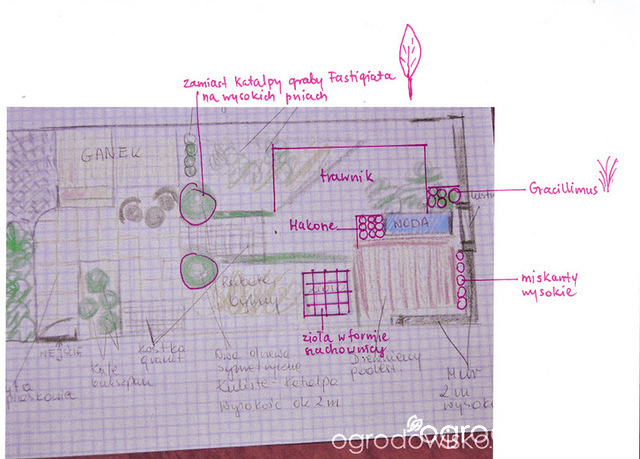 zamiast Katalpy graby Fastigiata
na wysokich pniach
GANEK
trawnik
Gracillimus
Hakone
WODA
miskanty
wysokie
zioła w formie
szachownicy
WEJŚCIE
Kule
bukszpan
kostka
granit
Dwa drzewa
symetryczne
kuliste - katalpa
Wysokość ok 2 m
Drewniany
podest
Mur
2 m
wysoki
ogrodowisko